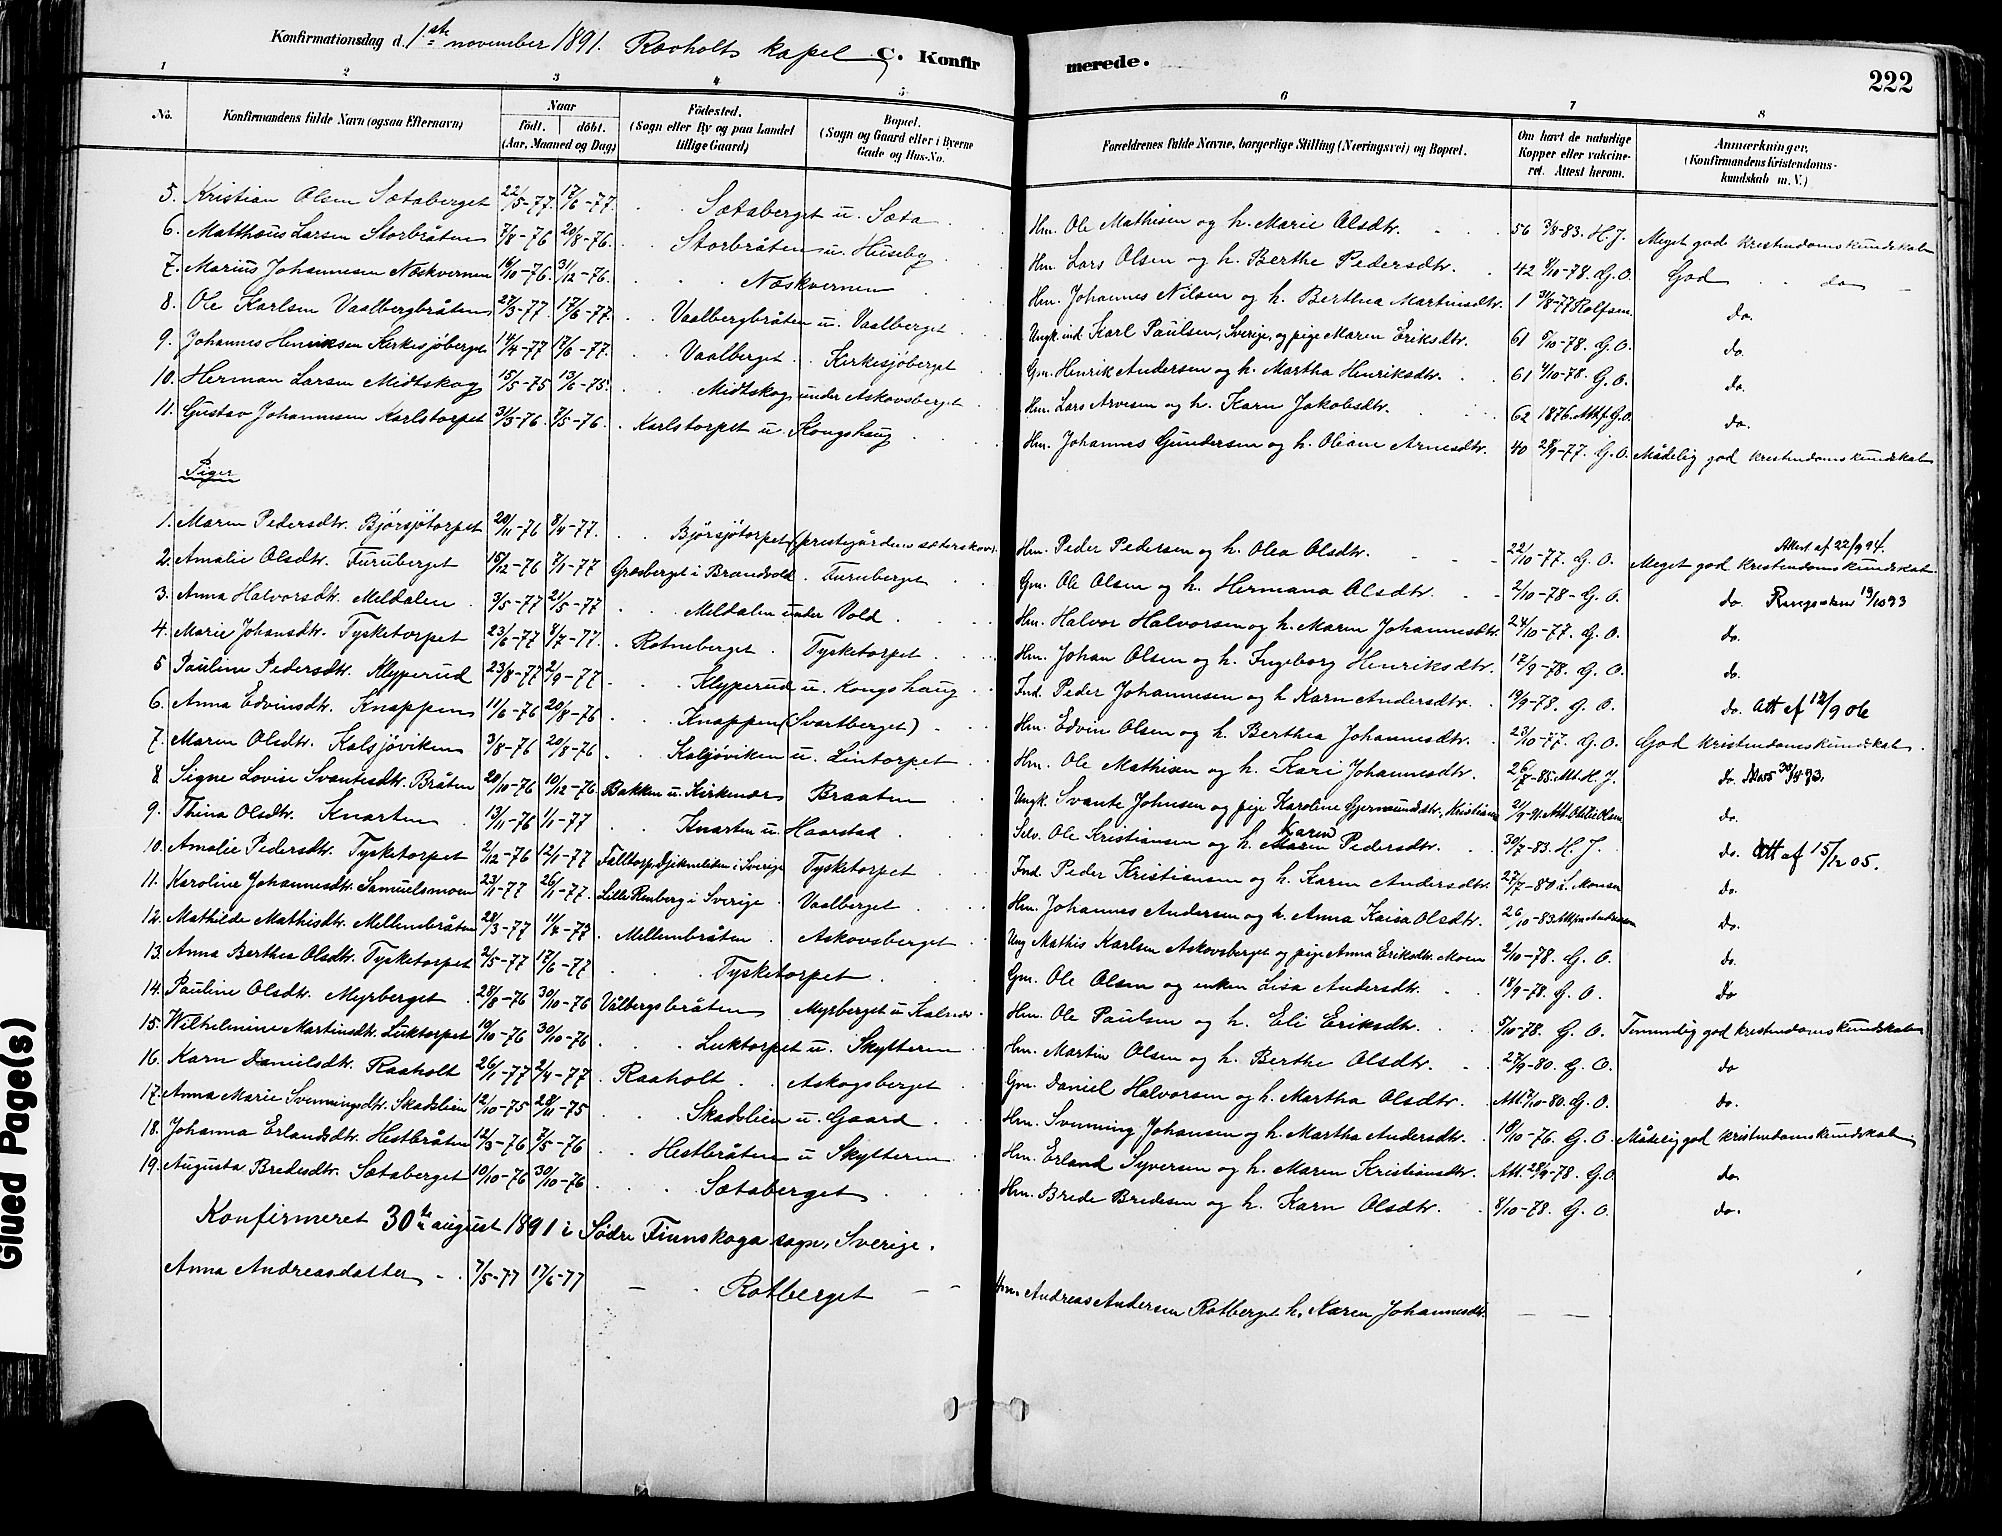 Konfirmationsdag d. 1.ste november 1891. Raaholts kapel C. Konfirmerede. 222
1 2 3 4 5 6 7 8
No. Konfirmandens fulde Navn (ogsaa Efternavn) Naar födt. döbt. (Aar, Maaned og Dag) Födested. (Sogn eller By og paa Landet tillige Gaard) Bopæl. (Sogn og Gaard eller i Byerne Gade og Hus-No. Forældrenes fulde Navne, borgerlige Stilling (Næringsvei) og Bopæl. Om havt de naturlige Kopper eller vakcineret. Attest herom. Anmærkninger. (Konfirmandens Kristendomskundskab m. V.)
5. Kristian Olsen Sætaberget 22/5-77. 17/6-77. Sætaberget u. Sæta Hm. Ole Mathisen og h. Marie Olsdtr. 56 3/8-83. H. J. Meget god kristendomskundskab
6. Matthæus Larsen Storbråten 7/8-76 20/8-76. Storbråten u. Huseby Hm. Lars Olsen og h. Berthe Pedersdtr. 42 8/10-78. G. O. God do
7. Marius Johannesen Næskvernen 16/10-76. 31/12-76. Næskvernen Hm. Johannes Nilsen og h. Berthea Martinsdtr. 1 31/8-77 Rolfsen. do.
8. Ole Karlsen Vaalbergbråten 27/3-77. 17/6-77. Vaalbergbråten u. Vaalberget Ungk. ind. Karl Paulsen, Sverige, og pige Maren Eriksdtr. 61 5/10-78. G. O. do.
9. Johannes Henriksen Kirkesjøberget 14/4-77 17/6-77. Vaalberget Kirkesjøberget Gm. Henrik Andersen og h. Martha Henriksdtr. 61 4/10-78. G. O. do
10. Herman Larsen Midtskog 15/5-75 13/6-75. Midtskog under Askovsberget Hm. Lars Arvesen og h. Karn Jakobsdtr. 62 1876. Att. f. G. O. do.
11. Gustav Johannesen Karlstorpet 31/3-76. 7/5-76. Karlstorpet u. Kongshaug Hm. Johannes Gundersen og h. Oliane Arnesdtr. 40 28/9-77. G. O. Mådelig god kristendomskundskab
Piger
1. Maren Pedersdtr. Bjørsjøtorpet 20/11-76 8/4-77. Bjørsjøtorpet (prestegårdens sæterskov) Hm. Peder Pedersen og h. Olea Olsdtr. 22/10-77. G. O. Meget god kristendomskundskab. Attest af 22/9 94.
2. Amalie Olsdtr. Furuberget 15/12-76 7/1-77 Græsberget i Brandvold Furuberget Gm. Ole Olsen og h. Hermana Olsdtr. 2/10-78- G. O. do
3. Anna Halvorsdtr. Meldalen 3/5-77 21/5-77 Meldalen under Vold Hm. Halvor Halvorsen og h. Maren Johannesdtr. 24/10-77. G. O. do.
4. Marie Johansdtr. Tysketorpet 23/6-77 8/7-77. Rotneberget Tysketorpet Hm. Johan Olsen og h. Ingeborg Henriksdtr. 17/9-78. G. O. do.
5 Pauline Pedersdtr. Klyperud 23/8-77 2/9-77 Klyperud u. Kongshaug Ind. Peder Johannesen og h Karn Andersdtr. 19/9-78. G. O. do. Att af 12/9 06
6. Anna Edvinsdtr. Knappen 11/6-76 20/8-76 Knappen (Svartberget) Hm. Edvin Olsen og h. Berthea Johannesdtr. 23/10-77. G. O. God kristendomskundskab
7. Maren Olsdtr. Kalsjøviken 3/8-76 20/8-76 Kalsjøviken u. Lintorpet Hm. Ole Mathisen og h. Kari Johannesdtr. 26/7-85. Att. H. J. do.
8. Signe Lovise Svantesdtr. Bråten 20/10-76 10/12-76 Bakken u. Kirkenær Braaten Ungk. Svante Johnsen og pige Karoline Gjermundsdtr, Kristiania 21/9-91. Att. Otilie Olsen do.
9. Thina Olsdtr. Knarten 13/11-76 1/1-77 Knarten u. Haarstad Selv. Ole Kristiansen og h. Maren Karen Pedersdtr. 30/7-83. H. J. do. Att af 15/12 05.
10. Amalie Pedersdtr. Tysketorpet 2/12-76 12/1-77 Falltorp Djekneliden i Sverige Tysketorpet Ind. Peder Kristiansen og h. Karen Andersdtr. 27/7-80 L. Monsen do.
11. Karoline Johannesdtr. Samuelsmoen 23/1-77 26/1-77. Lille Renberg i Sverige Vaalberget Hm. Johannes Andersen og h. Anna Kaisa Olsdtr. 26/10-83 do.
12. Mathilde Mathisdtr. Mellembråten 28/3-77 11/4-77 Mellembråten Askovsberget Ung Mathis Karlsen Askovsberget og pige Anna Eriksdtr. Moen 2/10-78. G. O. do.
13. Anna Berthea Olsdtr. Tysketorpet 2/5-77 17/6-77 Tysketorpet Gm. Ole Olsen og enken Lisa Andersdtr. 18/9-78. G. O. do
14. Pauline Olsdtr. Myrberget 28/8-76 30/10-76 Vålbergsbråten Myrberget u Kalnæs Hm. Ole Paulsen og h. Eli Eriksdtr. 5/10-78. G. O. Temmelig god kristendomskundskab
15. Wilhelmine Martinsdtr. Luktorpet 19/10-76 30/10-76 Luktorpet u. Skytteren Hm. Martin Olsen og h. Berthe Olsdtr. 27/9-80. G. O. do
16. Karn Danielsdtr. Raaholt 26/1-77 2/4-77 Raaholt Askogsberget Gm. Daniel Halvorsen og h. Martha Olsdtr. Att. 7/10-80. G. O. do.
17. Anna Marie Svenningsdtr. Skadslien 12/10-75 28/11-75 Skadslien u. Gaard Hm. Svenning Johansen og h. Martha Andersdtr. 19/10-76. G. O. Mådelig god kristendomskundskab
18. Johanna Erlandsdtr. Hestbråten 12/3-76 7/5-76 Hestbråten u Skytteren Hm. Erland Syversen og h. Maren Kristiansdtr. Att. 28/9-78. G. O. do.
19. Augusta Bredesdtr. Sætaberget 10/10-76 30/10-76 Sætaberget Hm. Brede Bredesen og h. Karn Olsdtr. 8/10-78. G. O. do.
Konfirmeret 30te august 1891 i Södre Finnskoga sogn, Sverige.
Anna Andreasdatter 7/5-77 17/6-77 Rotberget Hm Andreas Andersen Rotberget h. Karen Johannesdtr.
Glued Page(s)